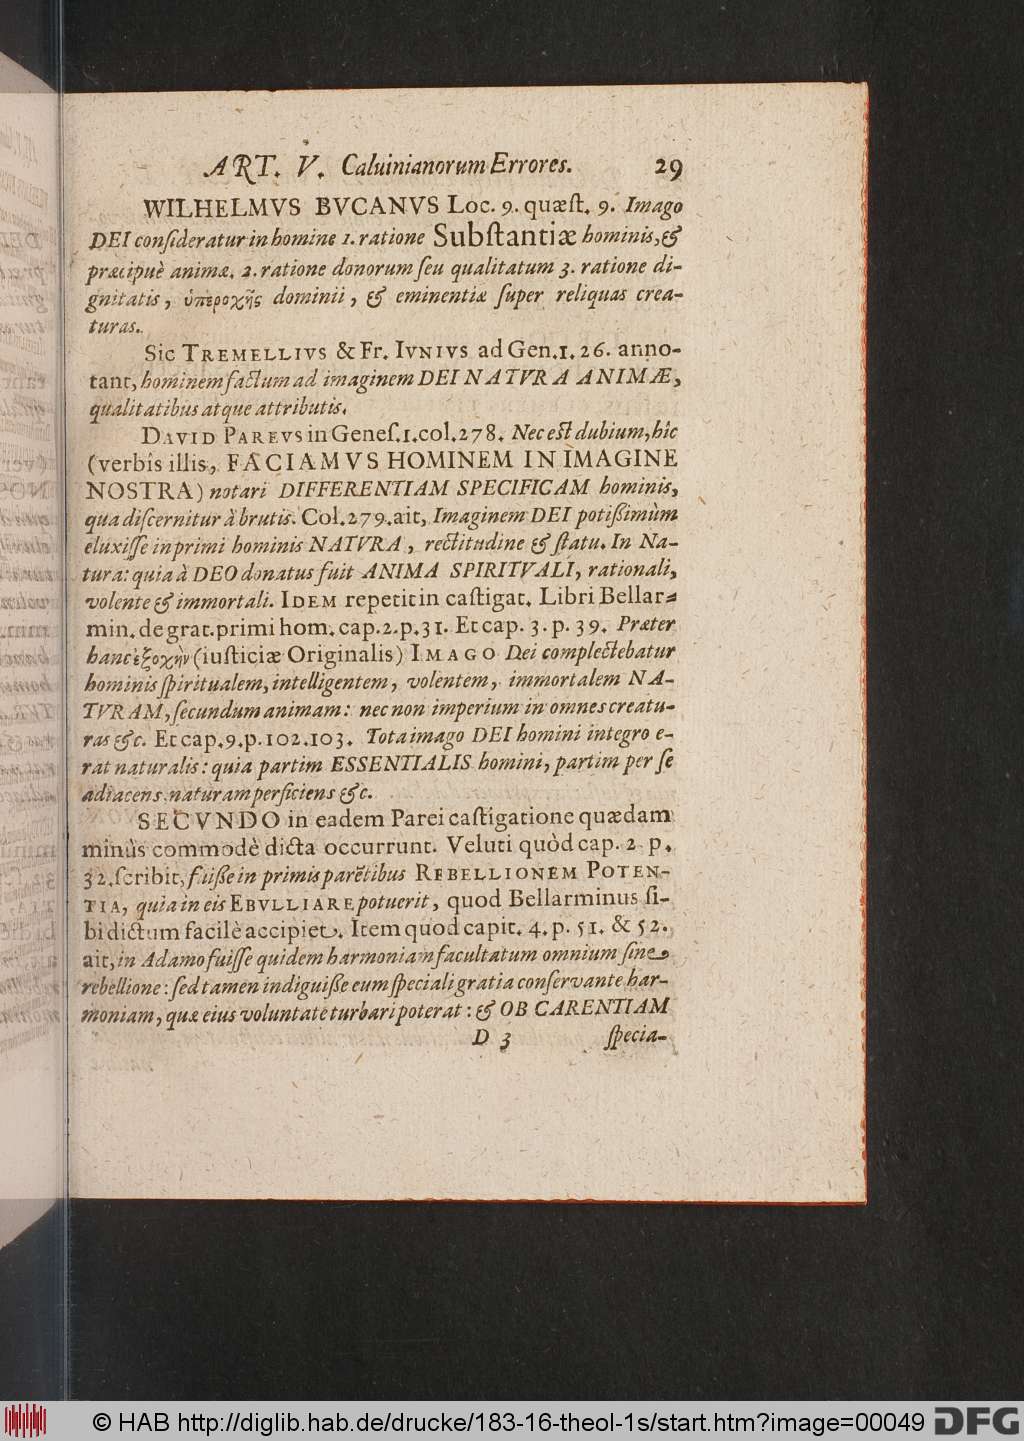 ART. V. Caluinianorum Errores. 29
WILHELMVS BVCANVS Loc. 9. quæſt. 9. Imago
DEI conſideratur in homine 1. ratione Subſtantiæ hominis, &
præcipuè animæ. 2. ratione donorum ſeu qualitatum 3. ratione di-
gnitatis, ὑπεροχῆς dominii, & eminentiæ ſuper reliquas crea-
turas.
Sic TREMELLIVS & Fr. IVNIVS ad Gen. 1. 26. anno-
tant, hominem factum ad imaginem DEI NATVRA ANIMÆ,
qualitatibus atque attributis.
DAVID PAREVS in Geneſ. 1. col. 278. Nec eſt dubium, hîc
(verbis illis, FACIAMVS HOMINEM IN IMAGINE
NOSTRA) notari DIFFERENTIAM SPECIFICAM hominis,
qua diſcernitur à brutis. Col. 279. ait, Imaginem DEI potißimùm
eluxiſſe in primi hominis NATVRA, rectitudine & ſtatu. In Na-
tura: quia à DEO donatus fuit ANIMA SPIRITVALI, rationali,
volente & immortali. IDEM repetit in caſtigat. Libri Bellar-
min. de grat. primi hom. cap. 2. p. 31. Et cap. 3. p. 39. Præter
hanc ἐξοχὴν (iuſticiæ Originalis) IMAGO Dei complectebatur
hominis ſpiritualem, intelligentem, volentem, immortalem NA-
TVRAM, ſecundum animam: nec non imperium in omnes creatu-
ras &c. Et cap. 9. p. 102. 103. Tota imago DEI homini integro e-
rat naturalis: quia partim ESSENTIALIS homini, partim per ſe
adiacens naturam perficiens &c.
SECVNDO in eadem Parei caſtigatione quædam
minùs commodè dicta occurrunt. Veluti quòd cap. 2. p.
32. ſcribit, fuiße in primis parẽtibus REBELLIONEM POTEN-
TIA, quia in eis EBVLLIARE potuerit, quod Bellarminus ſi-
bi dictum facilè accipiet. Item quod capit. 4. p. 51. & 52.
ait, in Adamo fuiſſe quidem harmoniam facultatum omnium ſine
rebellione: ſed tamen indiguiße eum ſpeciali gratia conſervante har-
moniam, quæ eius voluntate turbari poterat: & OB CARENTIAM
D 3 ſpecia-
© HAB http://diglib.hab.de/drucke/183-16-theol-1s/start.htm?image=00049 DFG